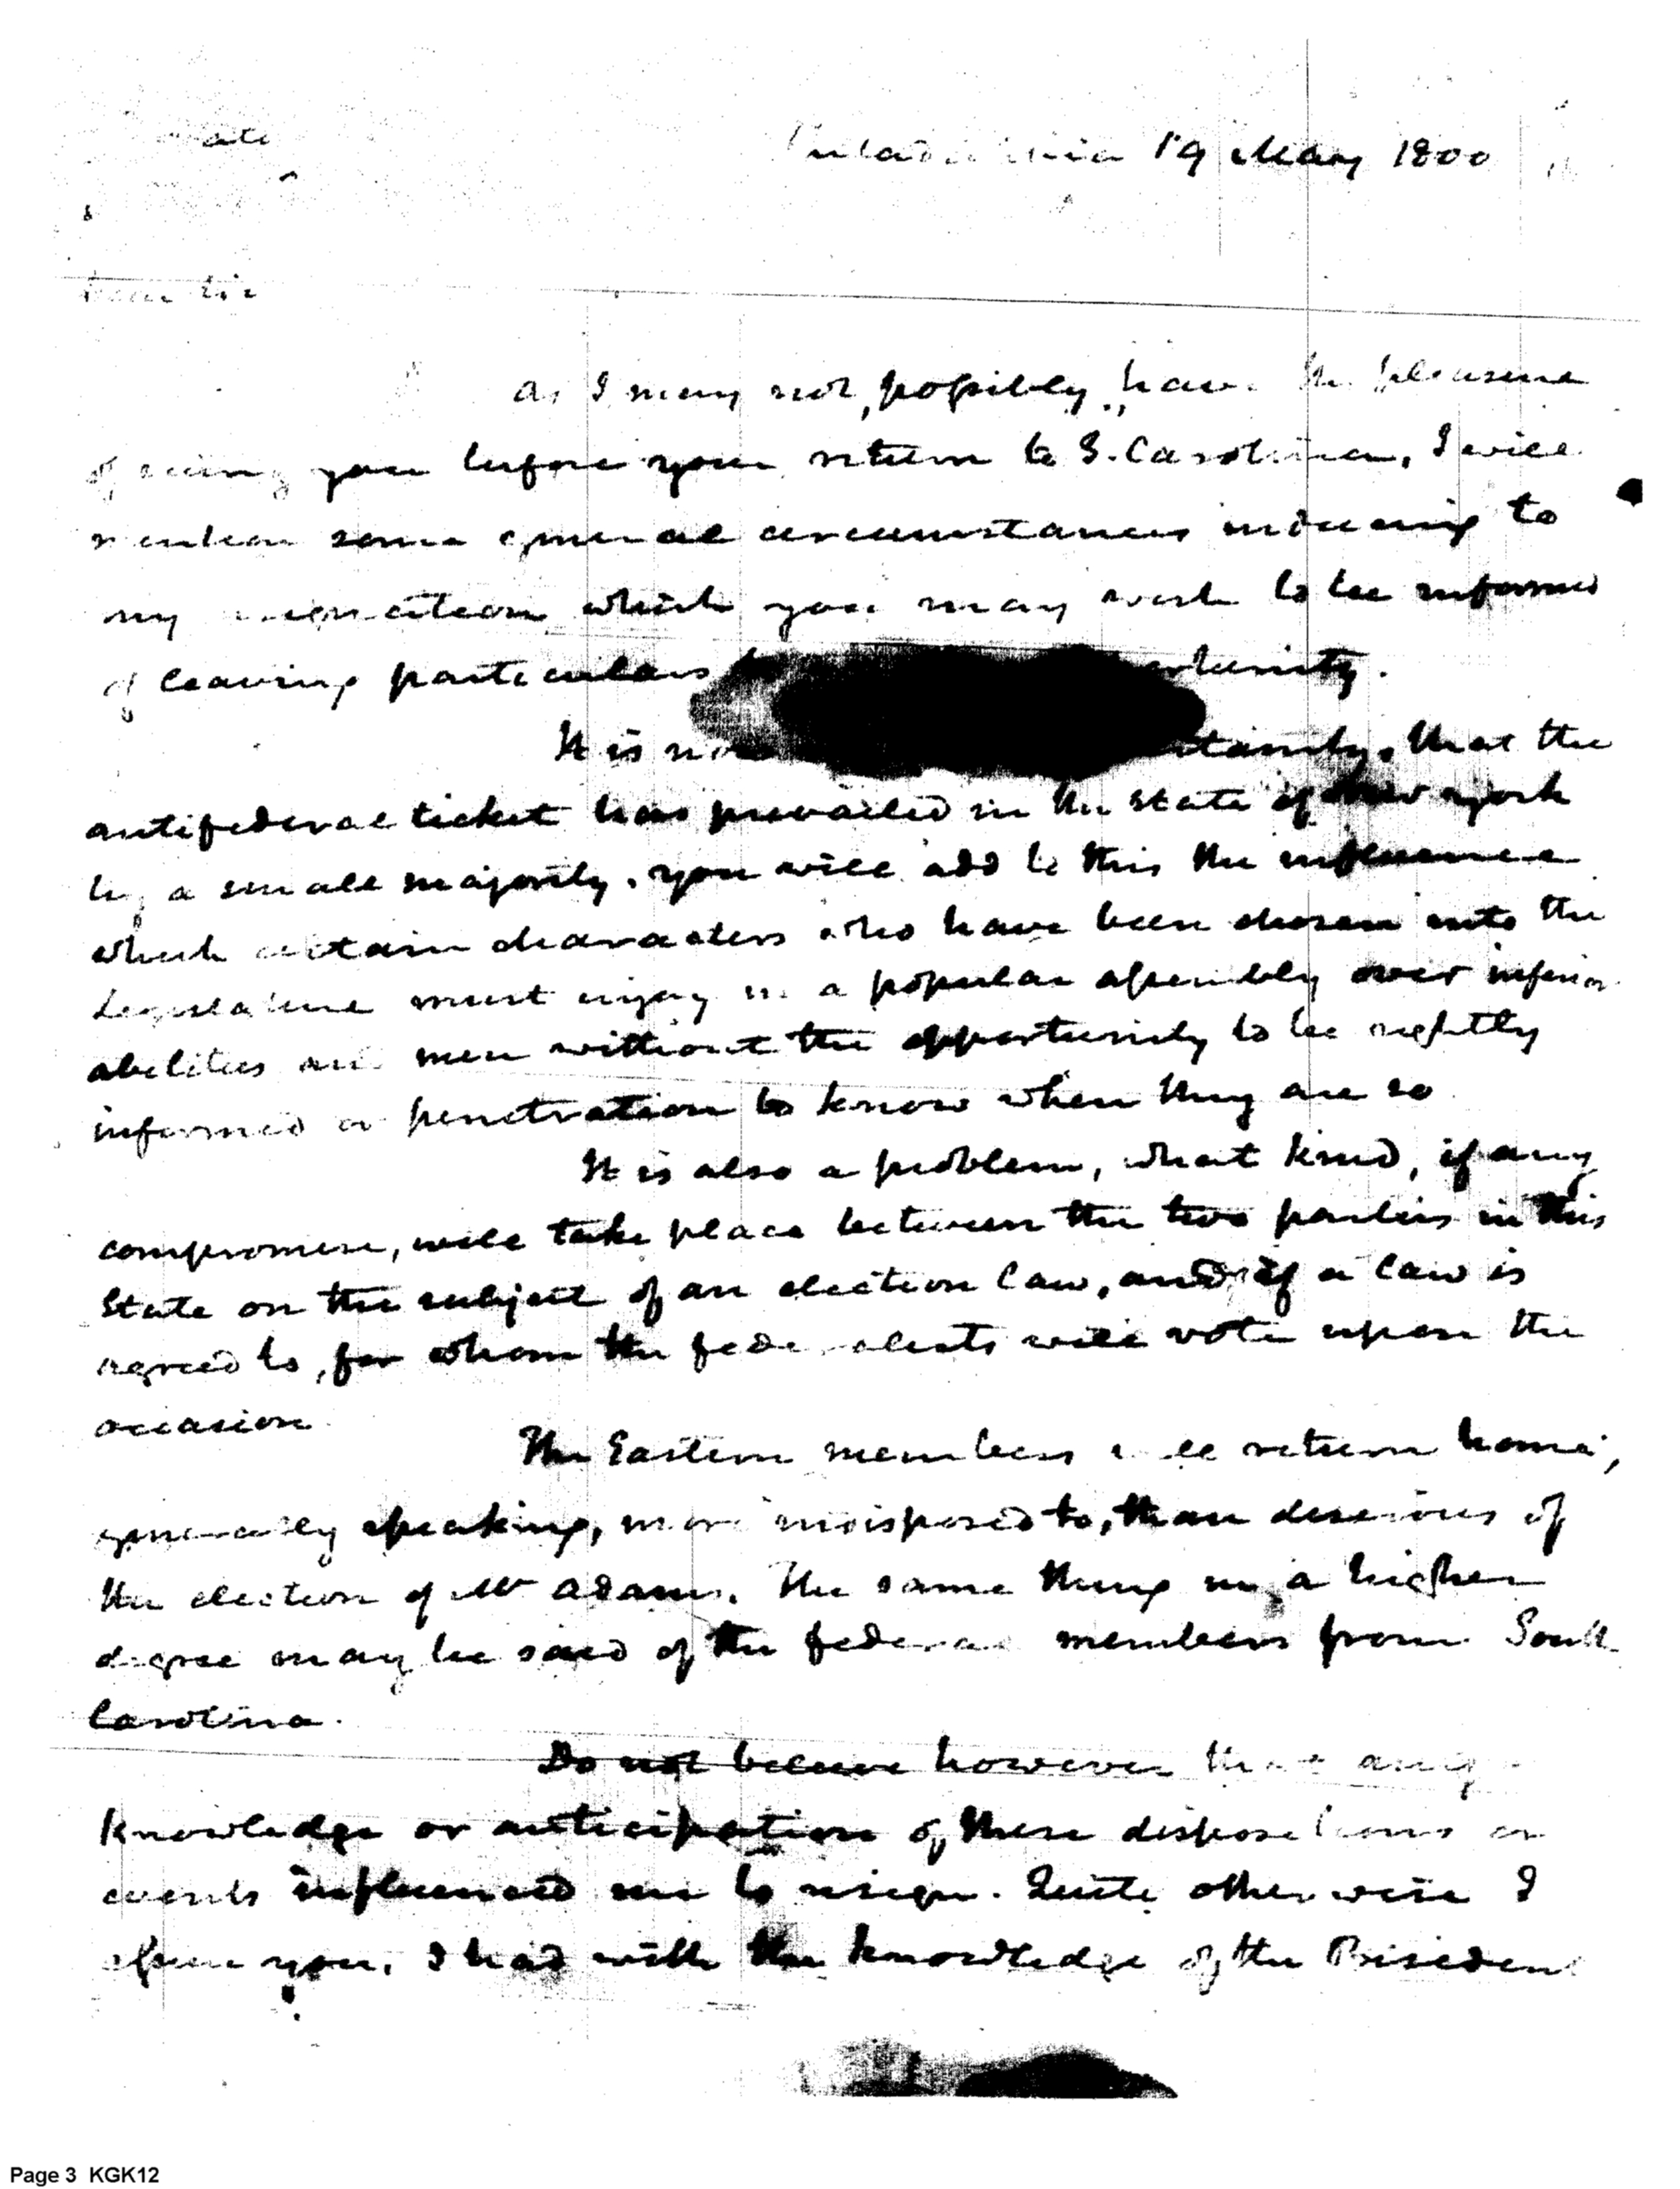 Philadelphia 19 May 1800
Dear Sir
As I may not, possibly, have the pleasure
of seeing you before your return to S. Carolina, I will
mention some general circumstances inducing to
my resignation which you may wish to be informed
of leaving particulars
It is now that the
antifederal ticket has prevailed in the State of New york
by a small majority. you will add to this the influence
which certain characters who have been chosen into the
Legislature must enjoy in a popular assembly over inferior
abilities and men without the opportunity to be rightly
informed or penetration to know when they are so
It is also a problem, what kind, if any
compromise, will take place between the two parties in this
State on the subject of an election law, and if a law is
agreed to, for whom the federalists will vote upon the
occasion
The Eastern members will return home,
generally speaking, more indisposed to, than desirous of
the election of Mr Adams. The same thing in a higher
degree may be said of the federal members from South
Carolina.
Do not believe however that any
knowledge or anticipation of these dispositions or
events influenced me to resign. Quite otherwise I
assure you, I had with the knowledge of the President
Page 3 KGK12